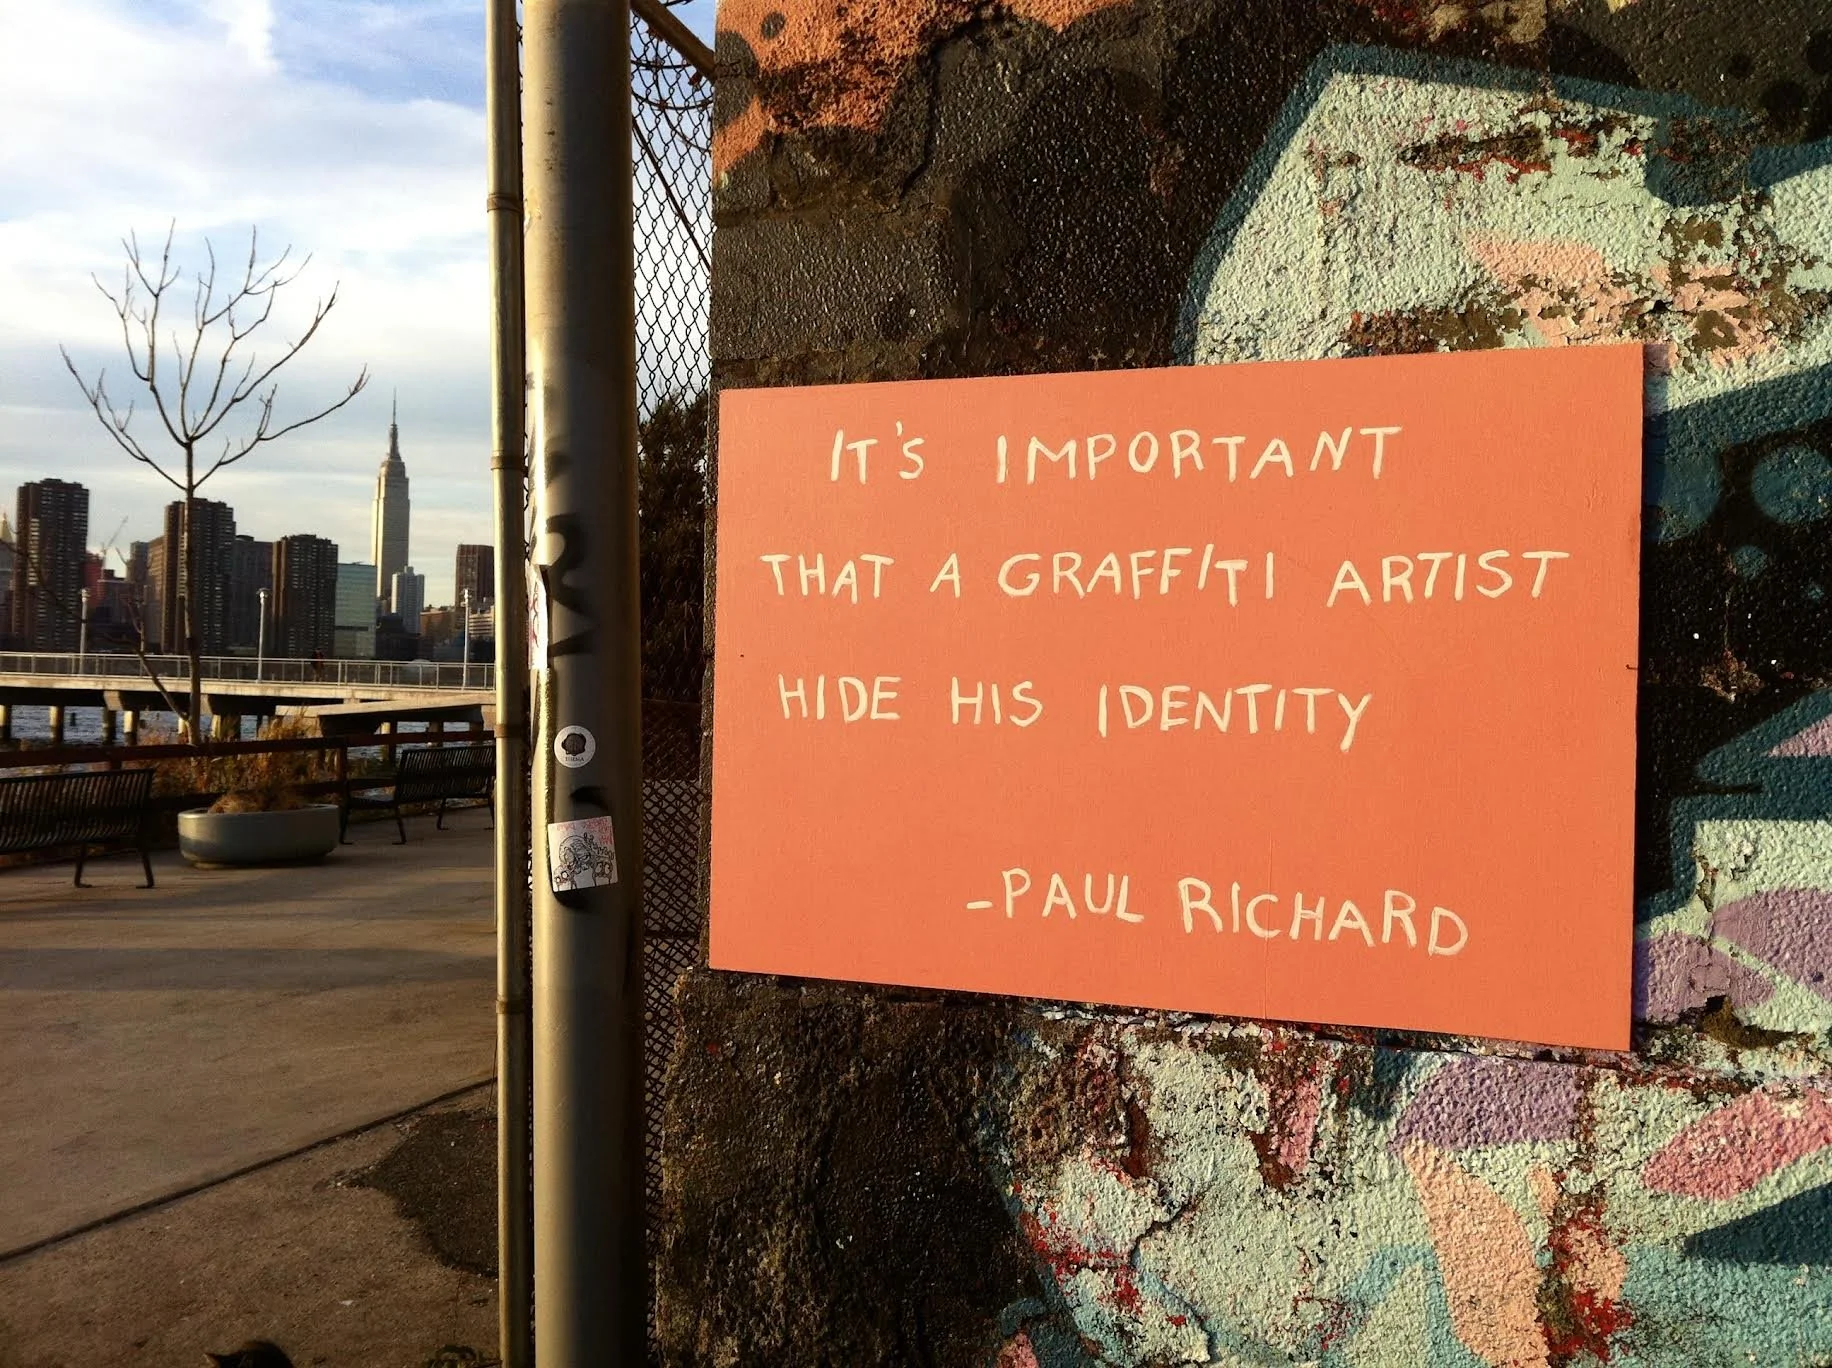 IT'S IMPORTANT
THAT A GRAFFITI ARTIST
HIDE HIS IDENTITY
-PAUL RICHARD